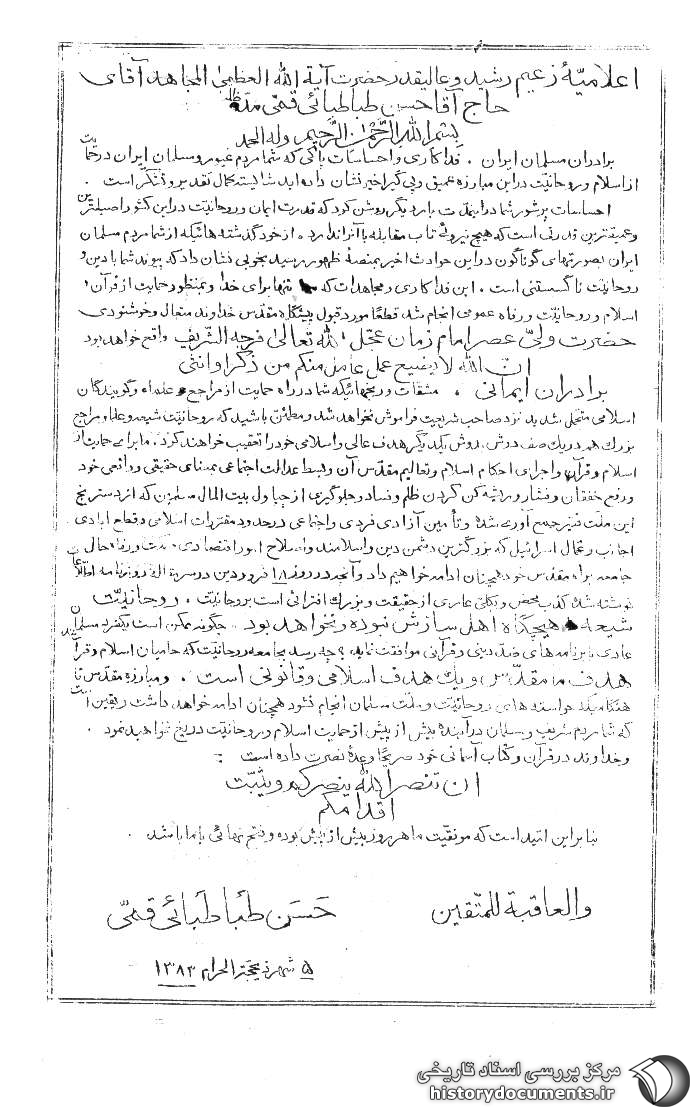 اعلامیهٔ زعیم رشید و عالیقدر حضرت آیة الله العظمیٰ المجاهد آقای
حاج آقا حسن طباطبائی قمّی مدّظله
بسم الله الرّحمٰن الرّحیم وله الحمد
برادران مسلمان ایران . فداکاری و احساسات پاکی که شما مردم غیور و مسلمان ایران در حمایت
از اسلام و روحانیّت در این مبارزه عمیق و پی گیر اخیر نشان داده اید شایسته کمال تقدیر و تشکّر است .
احساسات پرشور شما در این مدّت بار دیگر روشن کرد که قدرت ایمان و روحانیّت در این کشور اصیلترین
و عمیقترین قدرتی است که هیچ نیروئی تاب مقابله با آنرا ندارد . از خود گذشته هائیکه از شما مردم مسلمان
ایران بصورتهای گوناگون در این حوادث اخیر بمنصهٔ ظهور رسید بخوبی نشان داد که پیوند شما با دین و
روحانیّت ناگسستنی است . این فداکاری و مجاهدات که تنها برای خدا و بمنظور حمایت از قرآن و
اسلام و روحانیّت و رفاه عمومی انجام شد قطعاً مورد قبول پیشگاه مقدّس خداوند متعال و خوشنودی
حضرت ولیّ عصر امام زمان عجّل الله تعالیٰ فرجه الشّریف واقع خواهد بود
انّ الله لا یضیع عمل عامل منکم من ذکر او انثیٰ
برادران ایمانی . مشقّات و رنجهائیکه شما در راه حمایت از مراجع و علماء و گویندگان
اسلامی متحمّل شدید نزد صاحب شریعت فراموش نخواهد شد و مطمئن باشید که روحانیّت شیعه و علما و مراجع
بزرگ هم در یک صف دوش بدوش یکدیگر هدف عالی و اسلامی خود را تعقیب خواهند کرد . ما برای حمایت از
اسلام و قرآن و اجرای احکام اسلام و تعالیم مقدّس آن و بسط عدالت اجتماعی بمعنای حقیقی و واقعی خود
و رفع خفقان و فشار و ریشه کن کردن ظلم و فساد و جلوگیری از چپاول بیت المال مسلمین که از دسترنج
این ملّت فقیر جمع آوری شده و تأمین آزادی فردی و اجتماعی در حدود مقرّرات اسلامی و قطع ایادی
اجانب و عمّال اسرائیل که بزرگترین دشمن دین و اسلامند و اصلاح امور اقتصادی مملکت و رفاه حال
جامعه براه مقدّس خود همچنان ادامه خواهیم داد و آنچه در روز ۱۸ فروردین در سرمقالهٔ روزنامه اطّلاعات
نوشته شده کذب محض و بکلّی عاری از حقیقت و بزرگ افترائی است بروحانیّت . روحانیّت
شیعه هیچگاه اهل سازش نبوده و نخواهد بود . چگونه ممکن است یکفرد مسلمان
عادی با برنامه های ضدّ دینی و قرآنی موافقت نماید ؟ چه رسد بجامعه روحانیّت که حامیان اسلام و قرآنند
هدف ما مقدّس و یک هدف اسلامی و قانونی است . و مبارزه مقدّس تا
هنگامیکه خواسته های روحانیّت و ملّت مسلمان انجام نشود همچنان ادامه خواهد داشت و یقین است
که شما مردم شریف و مسلمان در آینده بیش از پیش از حمایت اسلام و روحانیّت دریغ نخواهید نمود .
و خداوند در قرآن و کتاب آسمانی خود صریحاً وعدهٔ نصرت داده است :
ان تنصرالله ینصرکم و یثبّت
اقدامکم
بنا براین امّید است که موفقیّت ما هر روز بیش از پیش بوده و فتح نهائی با ما باشد .
والعاقبة للمتّقین
حَسَن طَباطبائی قمّی
۵ شهر ذیحجّة الحرام ۱۳۸۳
مرکز بررسی اسناد تاریخی
historydocuments.ir